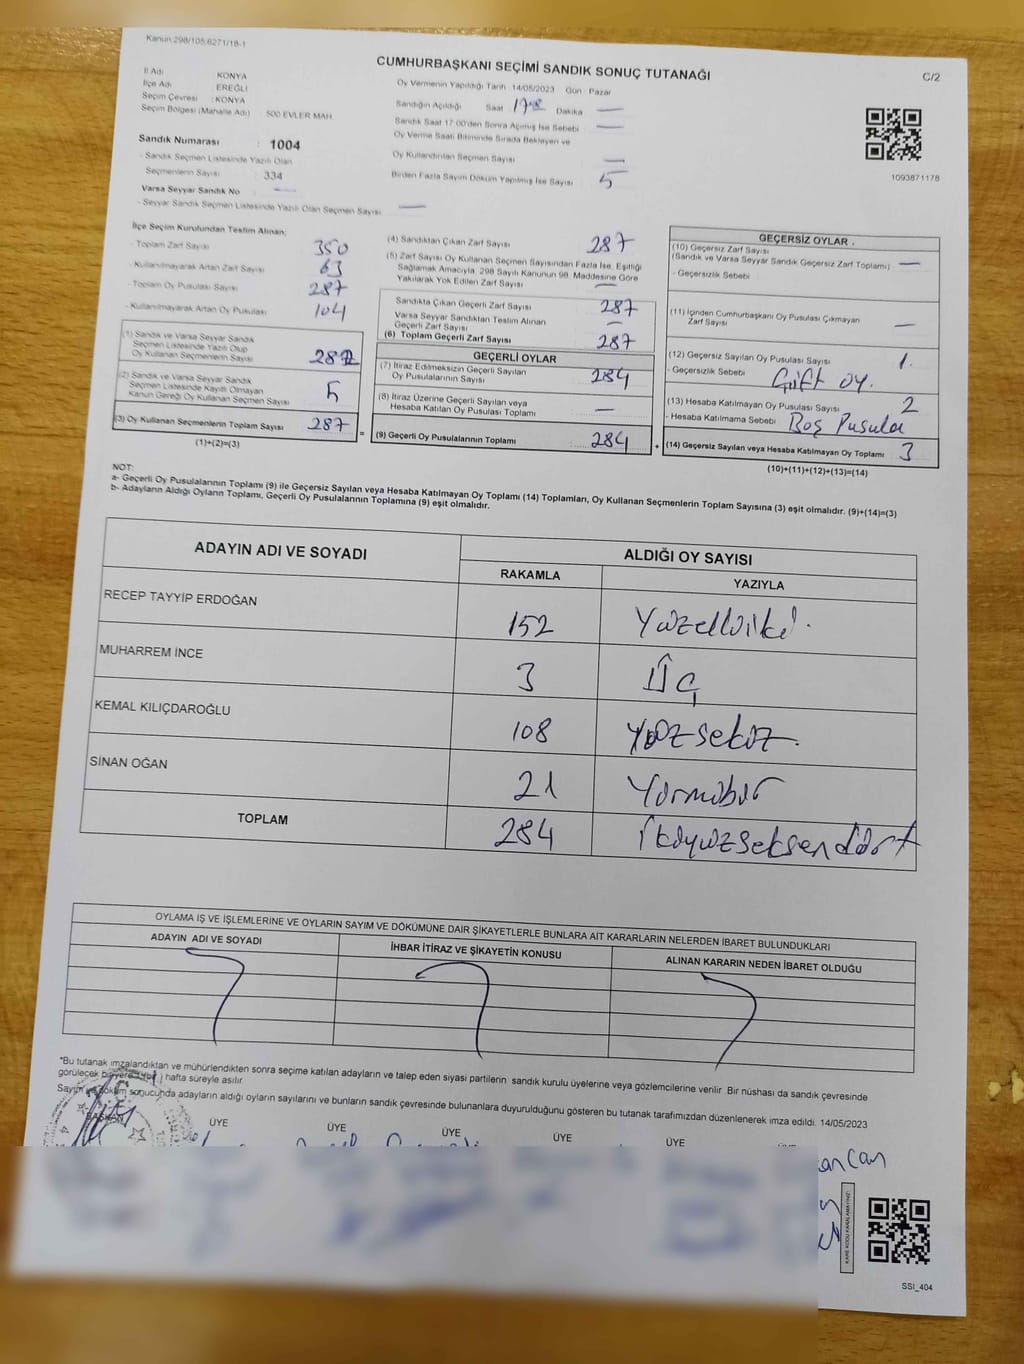 Kanun:298/105,6271/18-1
CUMHURBAŞKANI SEÇİMİ SANDIK SONUÇ TUTANAĞI
C/2
İl Adı KONYA
İlçe Adı EREĞLİ
Seçim Çevresi : KONYA
Seçim Bölgesi (Mahalle Adı) 500 EVLER MAH.
Oy Vermenin Yapıldığı Tarih : 14/05/2023 Gün : Pazar
Sandığın Açıldığı Saat Dakika —
Sandık Saat 17:00'den Sonra Açmış İse Sebebi —
Oy Verme Saati Bitiminde Sırada Bekleyen ve
Oy Kullandırılan Seçmen Sayısı —
Birden Fazla Sayım Döküm Yapılmış İse Sayısı 5
1093871178
Sandık Numarası : 1004
- Sandık Seçmen Listesinde Yazılı Olan
Seçmenlerin Sayısı : 334
Varsa Seyyar Sandık No —
- Seyyar Sandık Seçmen Listesinde Yazılı Olan Seçmen Sayısı —
İlçe Seçim Kurulundan Teslim Alınan;
- Toplam Zarf Sayısı 350
- Kullanılmayarak Artan Zarf Sayısı 63
- Toplam Oy Pusulası Sayısı 287
- Kullanılmayarak Artan Oy Pusulası 104
(1) Sandık ve Varsa Seyyar Sandık
Seçmen Listesinde Yazılı Olup
Oy Kullanan Seçmenlerin Sayısı
(2) Sandık ve Varsa Seyyar Sandık
Seçmen Listesinde Kayıtlı Olmayan
Kanun Gereği Oy Kullanan Seçmen Sayısı
(3) Oy Kullanan Seçmenlerin Toplam Sayısı 287
(1)+(2)=(3)
(4) Sandıktan Çıkan Zarf Sayısı 287
(5) Zarf Sayısı Oy Kullanan Seçmen Sayısından Fazla İse, Eşitliği
Sağlamak Amacıyla, 298 Sayılı Kanunun 98. Maddesine Göre
Yakılarak Yok Edilen Zarf Sayısı —
Sandıkta Çıkan Geçerli Zarf Sayısı 287
Varsa Seyyar Sandıktan Teslim Alınan
Geçerli Zarf Sayısı —
(6) Toplam Geçerli Zarf Sayısı 287
GEÇERLİ OYLAR
(7) İtiraz Edilmeksizin Geçerli Sayılan
Oy Pusulalarının Sayısı 284
(8) İtiraz Üzerine Geçerli Sayılan veya
Hesaba Katılan Oy Pusulası Toplamı —
= (9) Geçerli Oy Pusulalarının Toplamı 284 +
GEÇERSİZ OYLAR
(10) Geçersiz Zarf Sayısı
(Sandık ve Varsa Seyyar Sandık Geçersiz Zarf Toplamı) —
- Geçersizlik Sebebi
(11) İçinden Cumhurbaşkanı Oy Pusulası Çıkmayan
Zarf Sayısı —
(12) Geçersiz Sayılan Oy Pusulası Sayısı 1.
- Geçersizlik Sebebi Çift oy.
(13) Hesaba Katılmayan Oy Pusulası Sayısı 2
- Hesaba Katılmama Sebebi Boş Pusula
(14) Geçersiz Sayılan veya Hesaba Katılmayan Oy Toplamı 3
(10)+(11)+(12)+(13)=(14)
NOT:
a- Geçerli Oy Pusulalarının Toplamı (9) ile Geçersiz Sayılan veya Hesaba Katılmayan Oy Toplamı (14) Toplamları, Oy Kullanan Seçmenlerin Toplam Sayısına (3) eşit olmalıdır. (9)+(14)=(3)
b- Adayların Aldığı Oyların Toplamı, Geçerli Oy Pusulalarının Toplamına (9) eşit olmalıdır.
ADAYIN ADI VE SOYADI ALDIĞI OY SAYISI
RAKAMLA YAZIYLA
RECEP TAYYİP ERDOĞAN 152 Yüzelliiki.
MUHARREM İNCE 3 Üç
KEMAL KILIÇDAROĞLU 108 Yüzsekiz.
SİNAN OĞAN 21 Yirmibir
TOPLAM 284 İkiyüzseksendört
OYLAMA İŞ VE İŞLEMLERİNE VE OYLARIN SAYIM VE DÖKÜMÜNE DAİR ŞİKAYETLERLE BUNLARA AİT KARARLARIN NELERDEN İBARET BULUNDUKLARI
ADAYIN ADI VE SOYADI İHBAR İTİRAZ VE ŞİKAYETİN KONUSU ALINAN KARARIN NEDEN İBARET OLDUĞU
*Bu tutanak imzalandıktan ve mühürlendikten sonra seçime katılan adayların ve talep eden siyasi partilerin sandık kurulu üyelerine veya gözlemcilerine verilir. Bir nüshası da sandık çevresinde
görülecek bir yere hafta süreyle asılır.
Sayım ve döküm sonucunda adayların aldığı oyların sayılarını ve bunların sandık çevresinde bulunanlara duyurulduğunu gösteren bu tutanak tarafımızdan düzenlenerek imza edildi. 14/05/2023
BAŞKAN ÜYE ÜYE ÜYE ÜYE ÜYE
KARE KODU KARALAMAYINIZ
SSI_404